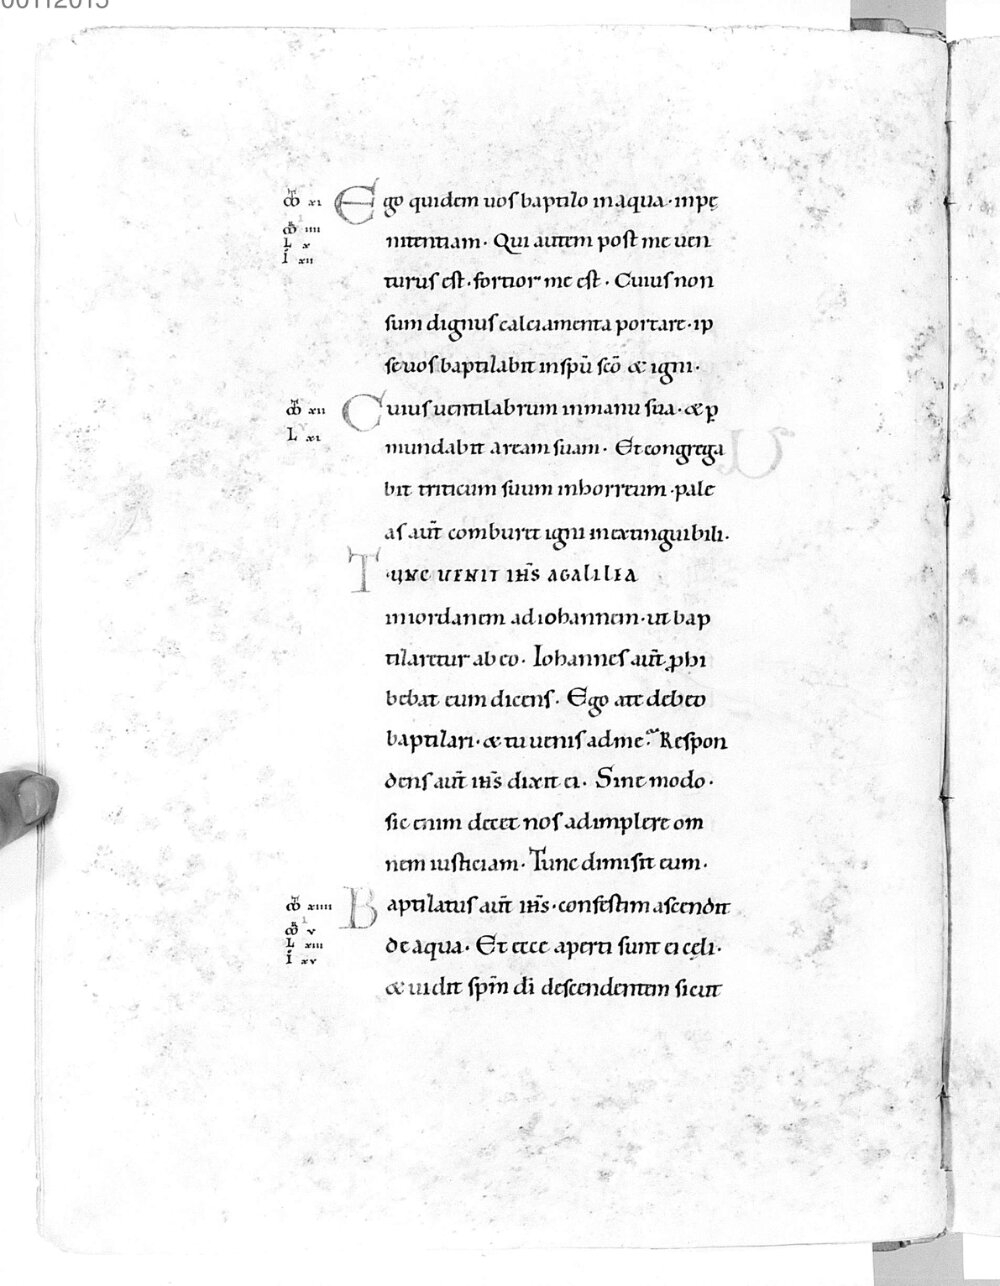 Ego quidem uos baptizo in aqua · in pę
nitentiam · Qui autem post me uen
turus est · fortior me est · Cuius non
sum dignus calciamenta portare · ip
se uos baptizabit in spū scō & igni ·
Cuius uentilabrum in manu sua · & ꝑ
mundabit aream suam · Et congrega
bit triticum suum in horreum · pale
as aut̄ comburet igni inextinguibili ·
TUNC UENIT IHS̄ A GALILEA
in iordanem ad iohannem · ut bap
tizaretur ab eo · Iohannes aut̄ ꝓhi
bebat eum dicens · Ego a te debeo
baptizari · & tu uenis ad me? Respon
dens aut̄ ihs̄ dixit ei · Sine modo ·
sic enim decet nos adimplere om
nem iusticiam · Tunc dimisit eum ·
Baptizatus aut̄ ihs̄ · confestim ascendit
de aqua · Et ecce aperti sunt ei cęli ·
& uidit spm̄ dī descendentem sicut
xi
iiii
L x
I xii
xii
L xi
xiiii
v
L xiii
I xv